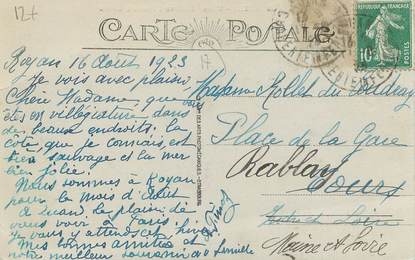 12+
CARTE POSTALE
RÉPUBLIQUE FRANÇAISE
10c
POSTES
17
Royan 16 Août 1923
Je vois avec plaisir
Chère Madame que vous
êtes en villégiature dans
de beaux endroits. La
côte, que je connais, est
bien sauvage et la mer
bien jolie.
Nous sommes à Royan
pour le mois d'Août
à quand le plaisir de
vous voir à Paris ?
Vous y attendez
Mes bonnes amitiés et
meilleur souvenir de famille
Madame Mollet du
Place de la Gare
Rablay
Tours
Indre et Loire
Maine et Loire